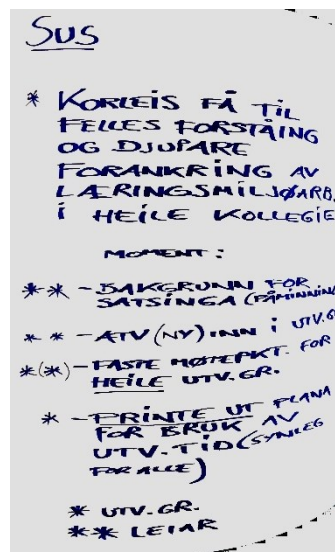 SUS
* KORLEIS FÅ TIL
FELLES FORSTÅING
OG DJUPARE
FORANKRING AV
LÆRINGSMILJØARB.
I HEILE KOLLEGIE
MOMENT:
** - BAKGRUNN FOR
SATSINGA (PÅMINNING
** - ATV (NY) INN I UTV.GR
*(*) - FASTE MØTEPKT. FOR
HEILE UTV.GR.
* - PRINTE UT PLANA
FOR BRUK AV
UTV.TID (SYNLEG
FOR ALLE)
* UTV.GR.
** LEIAR